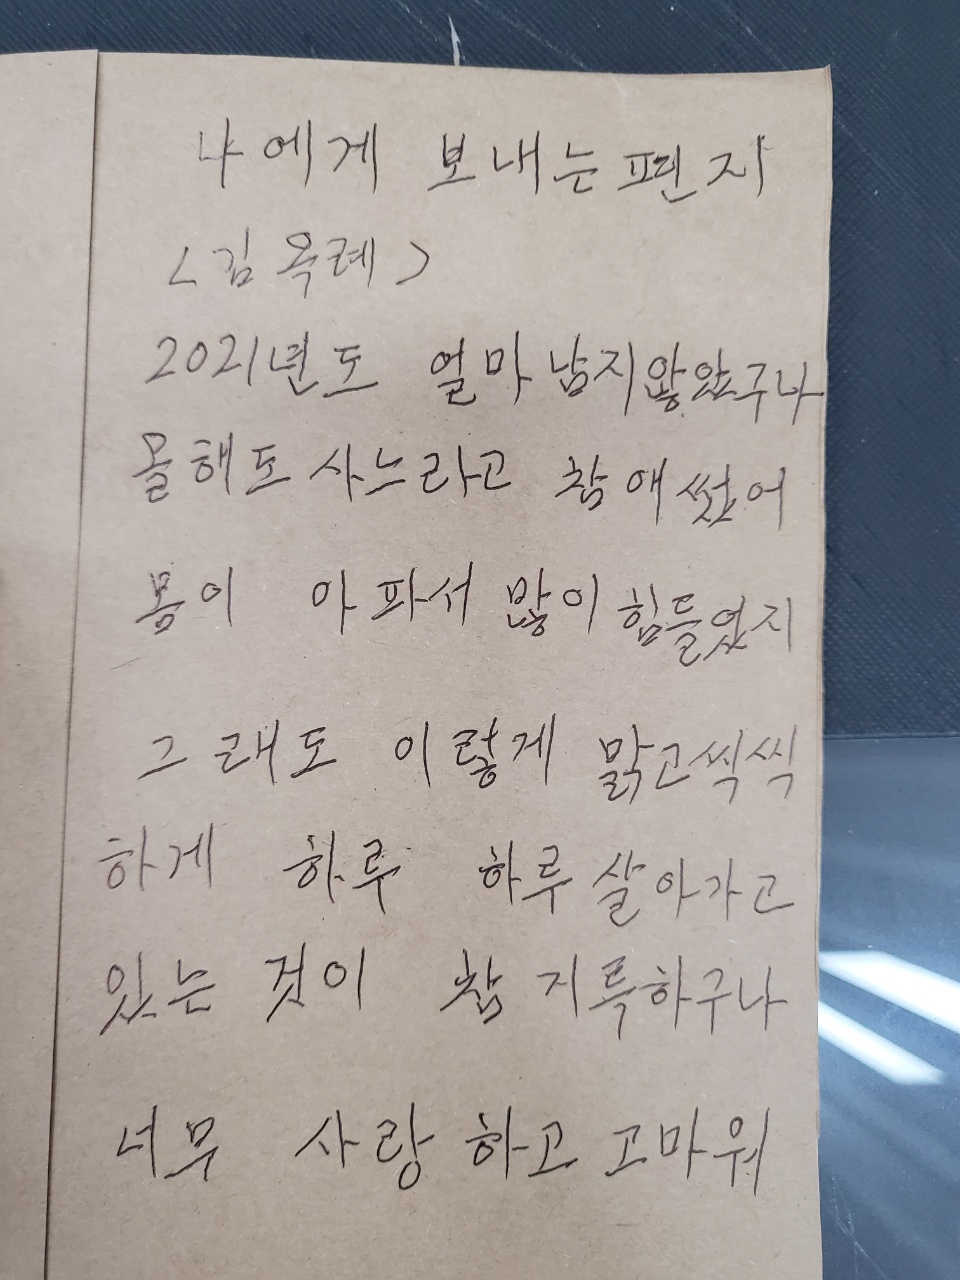 나에게 보내는 편지
<김옥례>
2021년도 얼마 남지않았구나
올해도 사느라고 참 애썼어
몸이 아파서 많이 힘들었지
그래도 이렇게 맑고씩씩
하게 하루 하루 살아가고
있는 것이 참 기특하구나
너무 사랑하고 고마워